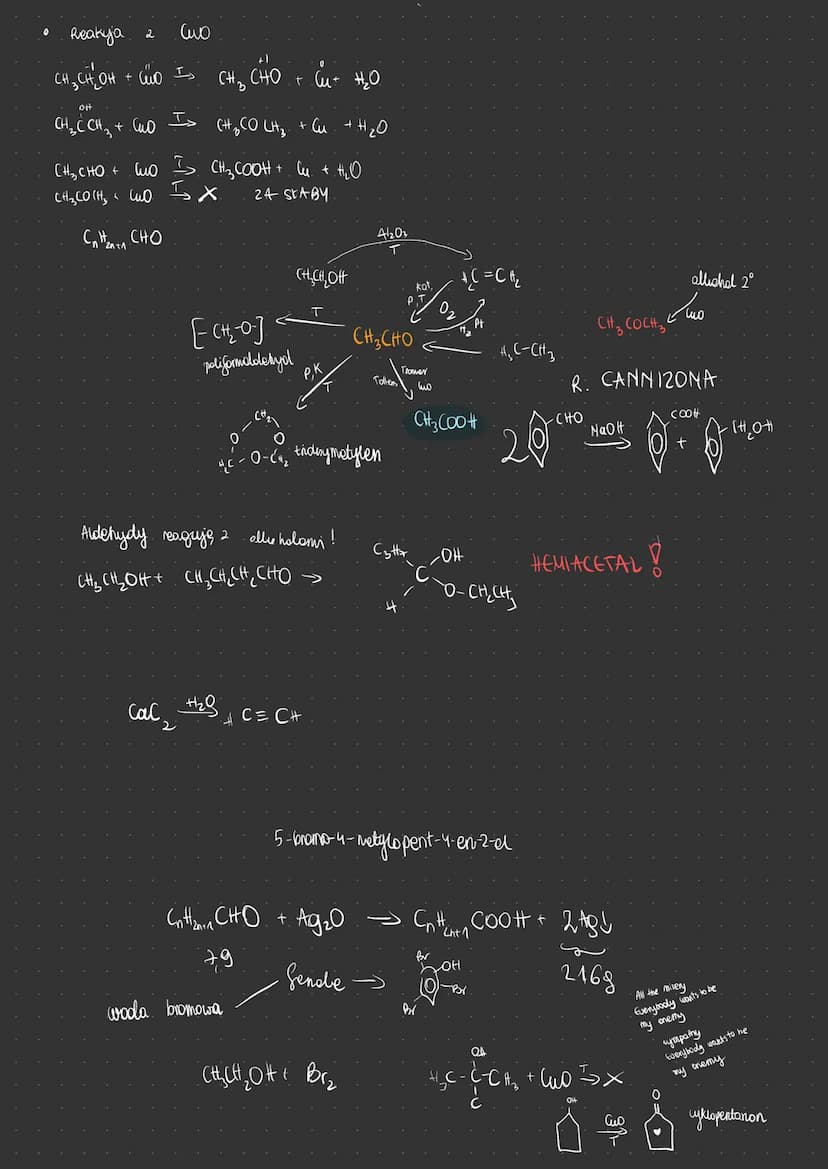 • Reakcja z CuO
CH₃CH₂OH + CuO T→ CH₃CHO + Cu + H₂O
-I II +I 0
OH
CH₃CCH₃ + CuO T→ CH₃COCH₃ + Cu + H₂O
CH₃CHO + CuO T→ CH₃COOH + Cu + H₂O
CH₃COCH₃ + CuO T→ X ZA SŁABY
CnH2n+1CHO
Al₂O₃
T
CH₃CH₂OH
H₂C=CH₂
kat.
P,T
O₂
H₂ Pt
alkohol 2°
CuO
CH₃COCH₃
[-CH₂-O-]
T
CH₃CHO
poliformaldehyd
H₃C-CH₃
P,K
T
Tollens
Tromer
CuO
CH₃COOH
R. CANNIZONA
2 CHO NaOH→ COOH + CH₂OH
CH₂
O O
H₂C-O-CH₂
trioksymetylen
Aldehydy reagują z alkoholami!
CH₃CH₂OH + CH₃CH₂CH₂CHO →
C₃H₇ OH
C
H O-CH₂CH₃
HEMIACETAL!
CaC₂ H₂O→ HC≡CH
5-bromo-4-metylopent-4-en-2-ol
CnH2n+1CHO + Ag₂O → CnH2n+1COOH + 2Ag↓
7,9
216g
woda bromowa
fenole →
Br OH
Br
Br
All the misery
Everybody wants to be
my enemy
sympathy
Everybody wants to be
my enemy
CH₃CH₂OH + Br₂
OH
H₃C-C-CH₃ + CuO T→ X
C
OH
CuO→
T
O
cyklopentanon